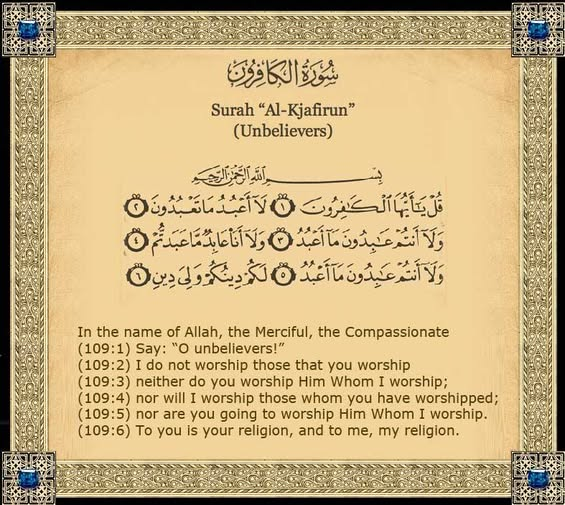 سُورَةُ الكَافِرُونَ
Surah “Al-Kjafirun”
(Unbelievers)
بِسْمِ اللَّهِ الرَّحْمَٰنِ الرَّحِيمِ
قُلْ يَٰٓأَيُّهَا ٱلْكَٰفِرُونَ ١ لَآ أَعْبُدُ مَا تَعْبُدُونَ ٢
وَلَآ أَنتُمْ عَٰبِدُونَ مَآ أَعْبُدُ ٣ وَلَآ أَنَا۠ عَابِدٌ مَّا عَبَدتُّمْ ٤
وَلَآ أَنتُمْ عَٰبِدُونَ مَآ أَعْبُدُ ٥ لَكُمْ دِينُكُمْ وَلِىَ دِينِ ٦
In the name of Allah, the Merciful, the Compassionate
(109:1) Say: “O unbelievers!”
(109:2) I do not worship those that you worship
(109:3) neither do you worship Him Whom I worship;
(109:4) nor will I worship those whom you have worshipped;
(109:5) nor are you going to worship Him Whom I worship.
(109:6) To you is your religion, and to me, my religion.